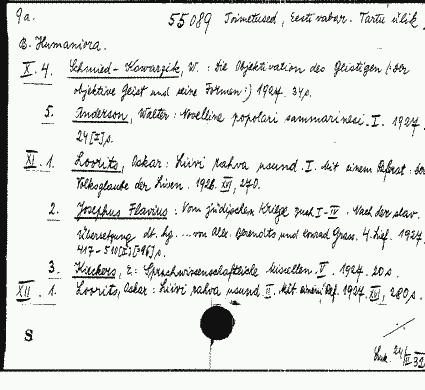 9a. 55089 Toimetused, Eesti vabar. Tartu ülik.
B. Humaniora.
X. 4. Schmied-Kowarzik, W.: Die Objektivation des Geistigen (:der
objektive Geist und seine Formen:) 1927. 34s.
5. Anderson, Walter: Novelline popolari sammarinesi. I. 1927.
24[I]s.
XI. 1. Loorits, Oskar: Liivi rahva usund. I. Mit einem Referat: der
Volksglaube der Liven. 1926. XVI, 270.
2. Josephus Flavius: Vom jüdischen Kriege Buch I-IV. Nach der slav.
Übersetzung dt. hg. ... von Alex. Berendts und Konrad Grass. 4. Lief. 1927.
417-510[I][+96]s.
3. Kieckers, E.: Sprachwissenschaftliche Miscellen. V. 1927. 20s.
XII. 1. Loorits, Oskar: Liivi rahva usund. II. Mit einem Ref. 1927. XVI, 280s.
S